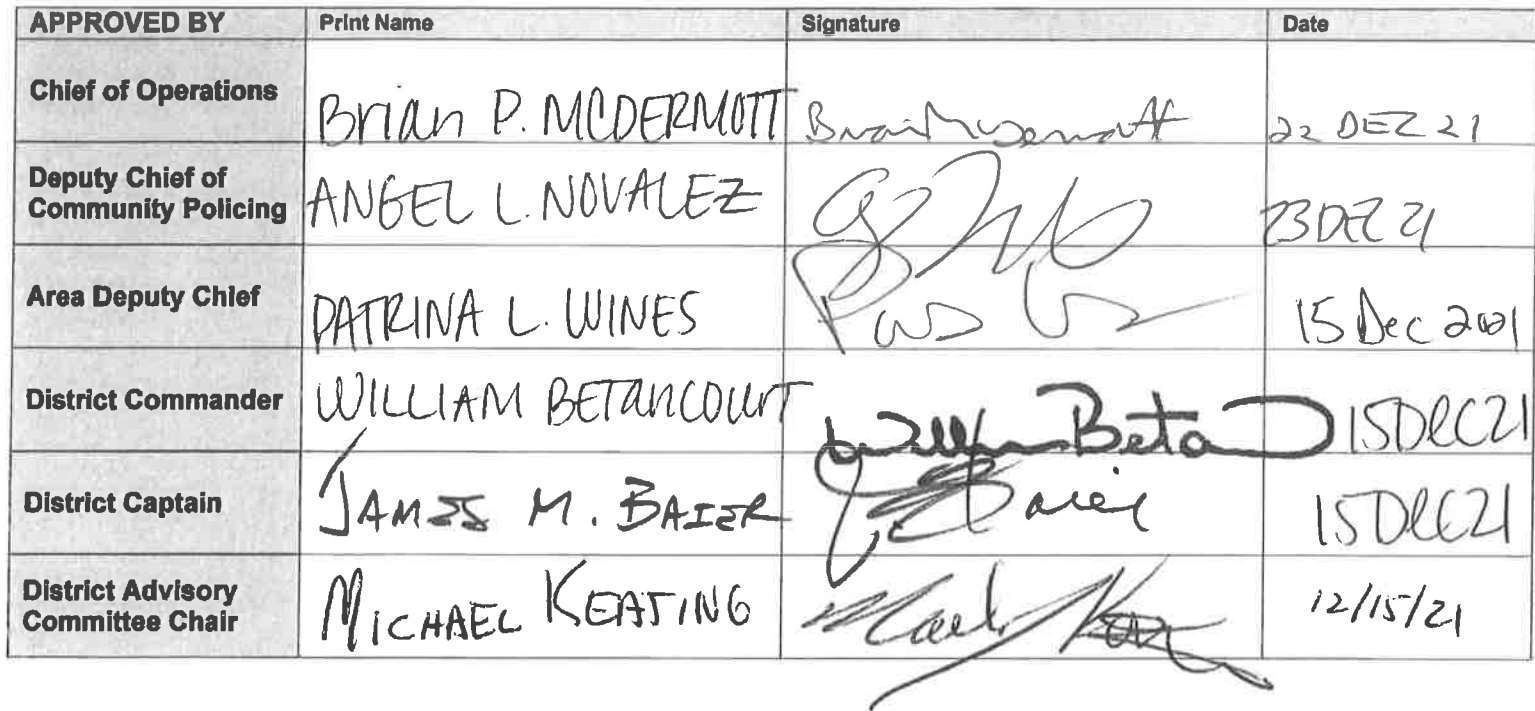 APPROVED BY Print Name Signature Date
Chief of Operations Brian P. MCDERMOTT Brian McDermott 22 DEZ 21
Deputy Chief of
Community Policing ANGEL L. NOVALEZ 23 DEZ 21
Area Deputy Chief PATRINA L. WINES 15 Dec 2021
District Commander WILLIAM BETANCOURT William Beta 15Dec21
District Captain JAMES M. BAIER J Baier 15Dec21
District Advisory
Committee Chair MICHAEL KEATING 12/15/21